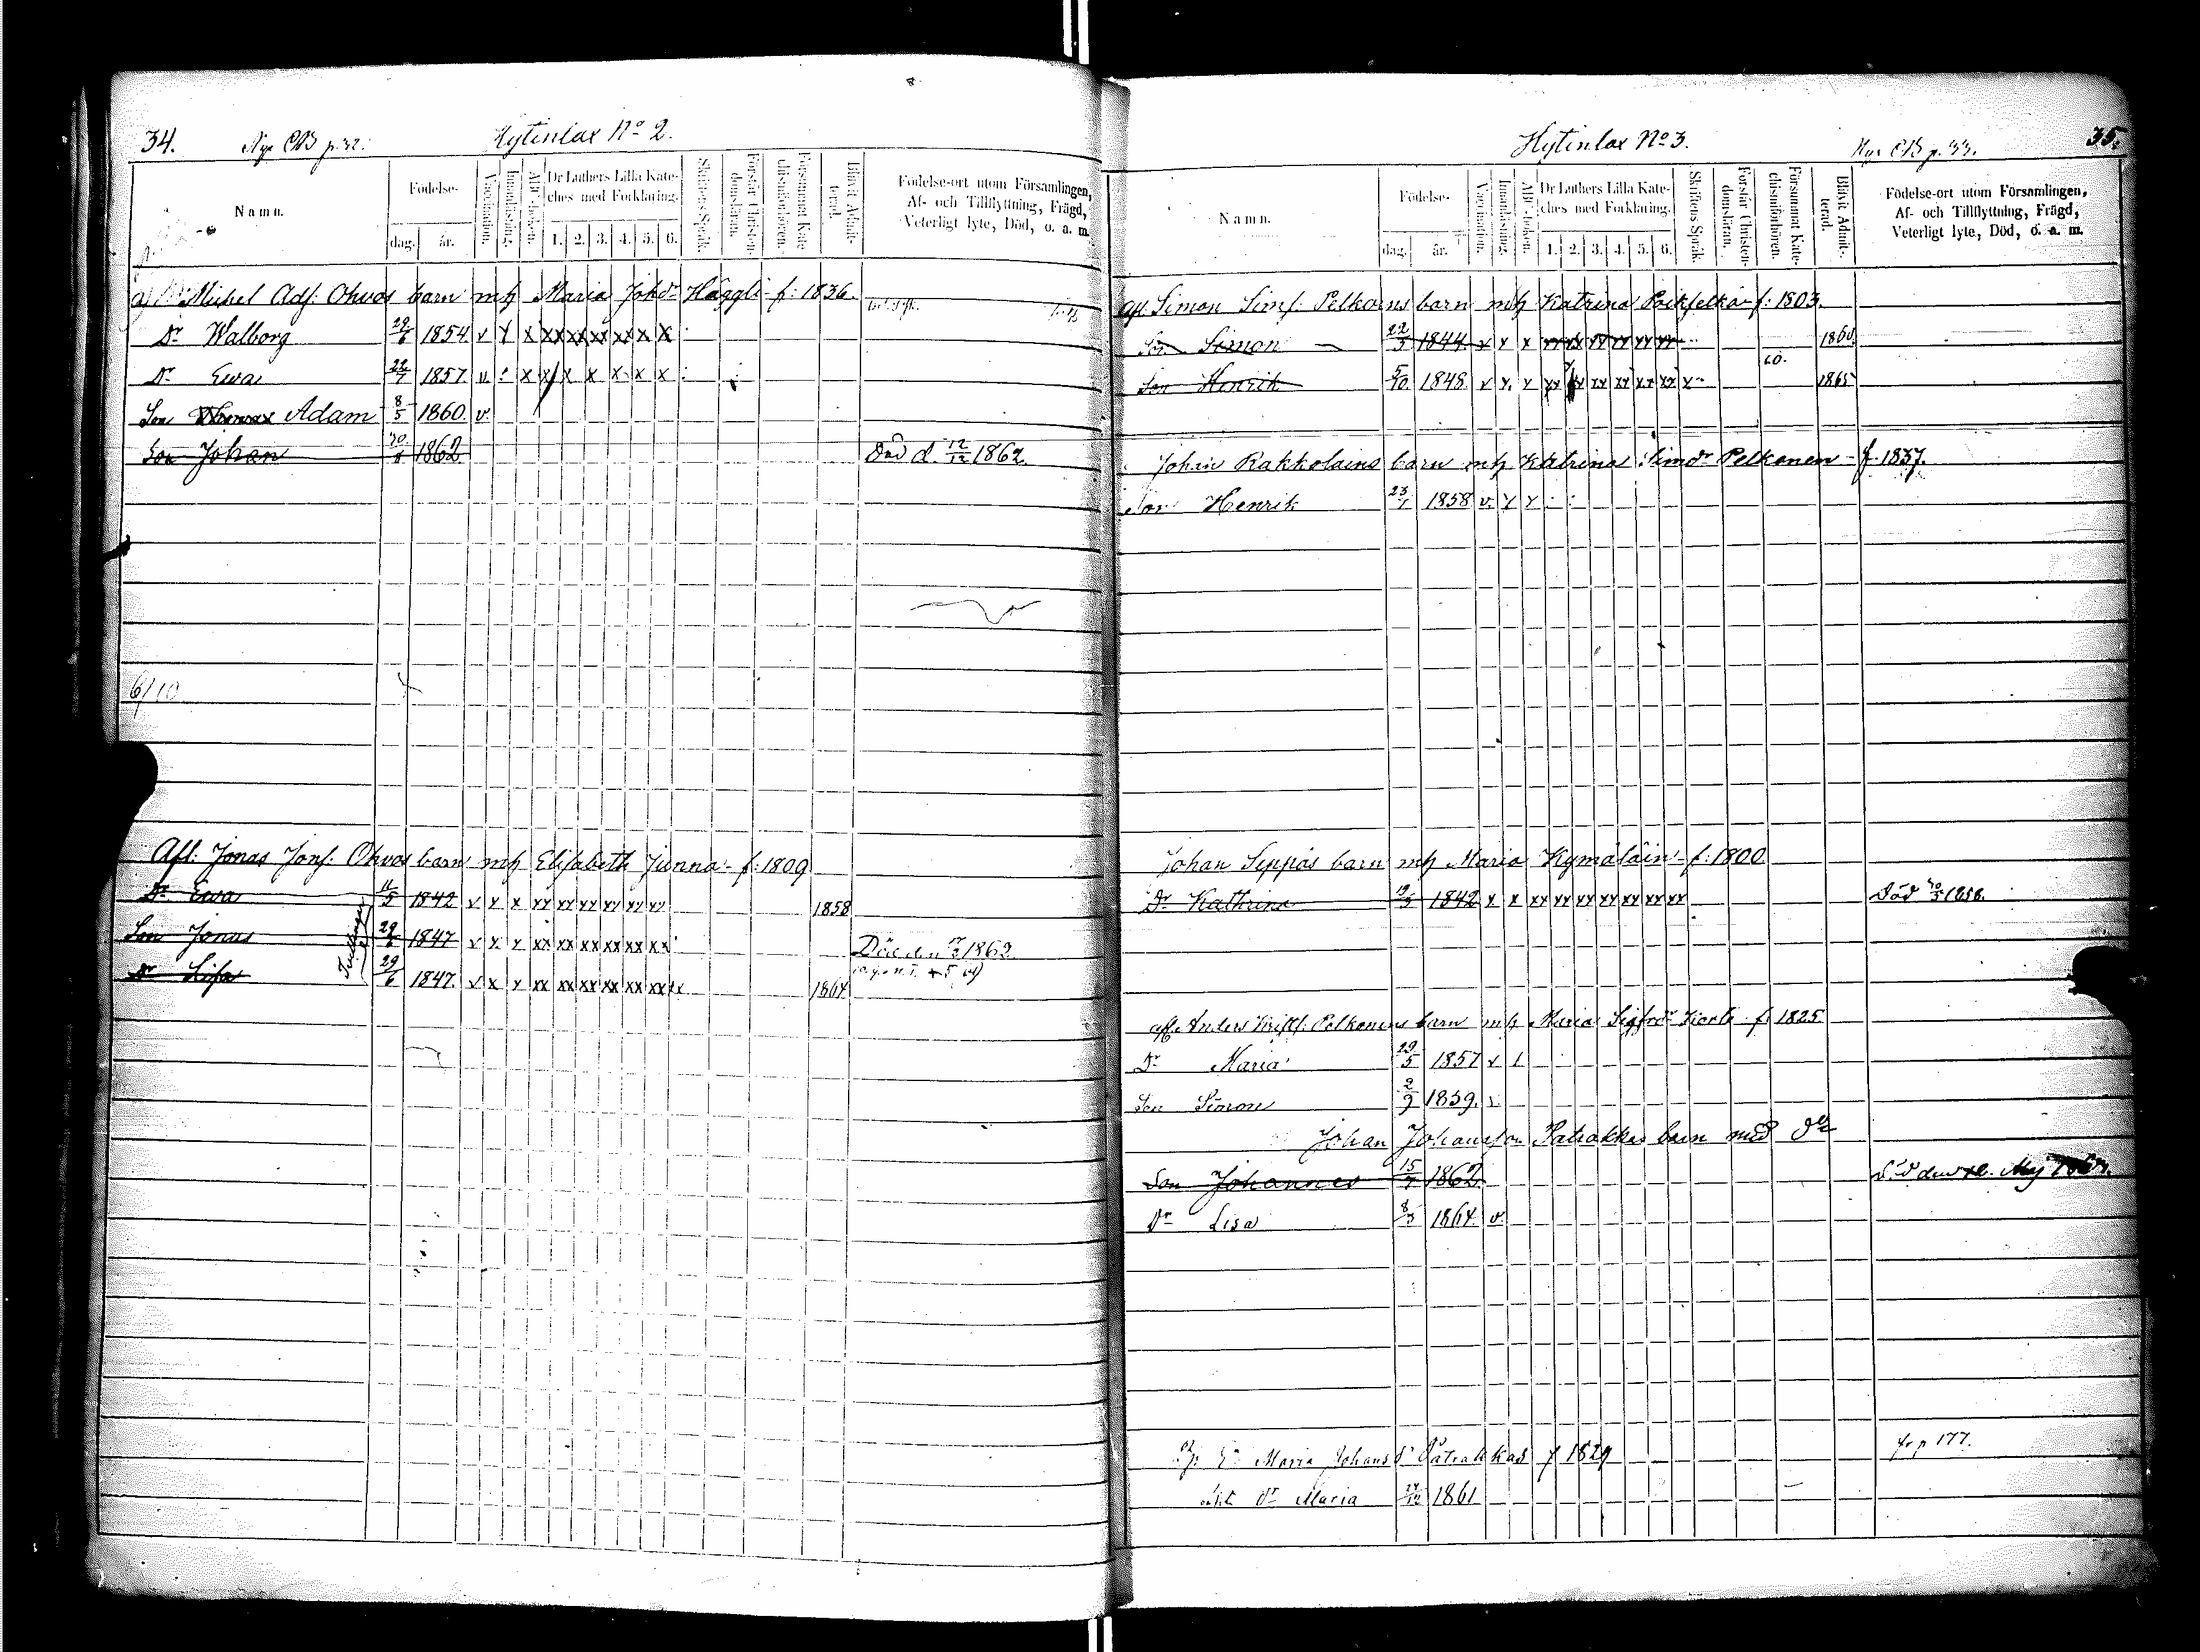 34. Nya CB p. 32. Hytinlax No 2.
Namn.
Födelse-
dag. år.
Vaccination.
Innanläsning.
Dr Luthers Lilla Kate-
ches med Förklaring.
1. 2. 3. 4. 5. 6.
Skriftens Språk.
Förstår Christen-
domsläran.
Försummat Kate-
chismiförhören.
Blifvit Admit-
terad.
Födelse-ort utom Församlingen,
Af- och Tillflyttning, Frägd,
Veterligt lyte, Död, o. a. m.
Michel Adf: Ohvos barn mh Maria Johdr Häggli f: 1836.
Dr Walborg 29/6 1854 v x x xx xx xx xx x
Dr Ewa 22/7 1857 v x x x x x x
Son Adam 8/5 1860. v.
Son Johan 1862 Död d. 12/12 1862.
6/10
Afl: Jonas Jonf. Ohvos barn mh Elisabeth Junna f: 1809
Dr Ewa 11/5 1842 v x x xx xx xx xx xx xx 1858
Son Jonas 29/6 1847 v x x xx xx xx xx xx xx Död den 1862
Dr Lisa 29/6 1847. v x x xx xx xx xx xx xx 1864
Hytinlax No 3. Nya CB p. 33. 35.
Namn.
Födelse-
dag. år.
Vaccination.
Innanläsning.
Dr Luthers Lilla Kate-
ches med Förklaring.
1. 2. 3. 4. 5. 6.
Skriftens Språk.
Förstår Christen-
domsläran.
Försummat Kate-
chismiförhören.
Blifvit Admit-
terad.
Födelse-ort utom Församlingen,
Af- och Tillflyttning, Frägd,
Veterligt lyte, Död, o. a. m.
Afl Simon Simf. Pelkoins barn mh Katrina f: 1803.
Son Simon 22/3 1844 v x x xx xx xx xx xx xx 1860
Son Henrik 5/10 1848 v x x xx xx xx xx xx xx x 60. 1865
Johan Rakkolains barn mh Katrina Simdr Pelkonen f 1837.
Son Henrik 23/1 1858 v. x x
Johan Seppäs barn mh Maria Kymäläin f: 1800
Dr Kathrina 1842 x x xx xx xx xx xx xx xx Död 1858.
afl. Anders Pelkonens barn mh Maria Sigfrdr f. 1825
Dr Maria 29/5 1857 v
Son Simon 2/9 1859. v
Johan Johansson Patrakkas barn med do
Son Johannes 15/7 1862 Död den Maj
Dr Lisa 8/3 1864 v.
Maria Johansdr Patrakkas f 1829 fr p 177.
Dr Maria 1861